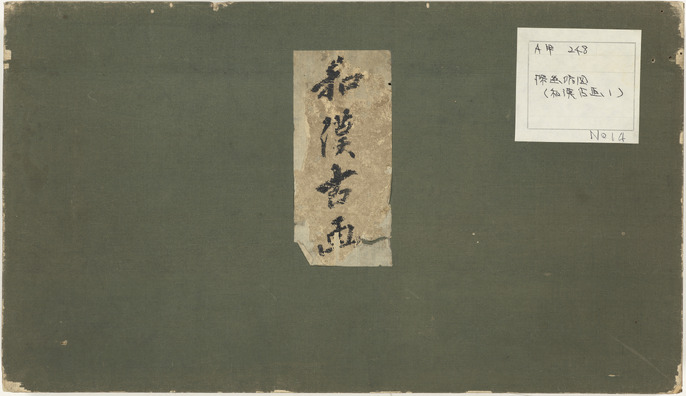 和漢古画
A甲 248
探幽縮図
(和漢古画1)
No14